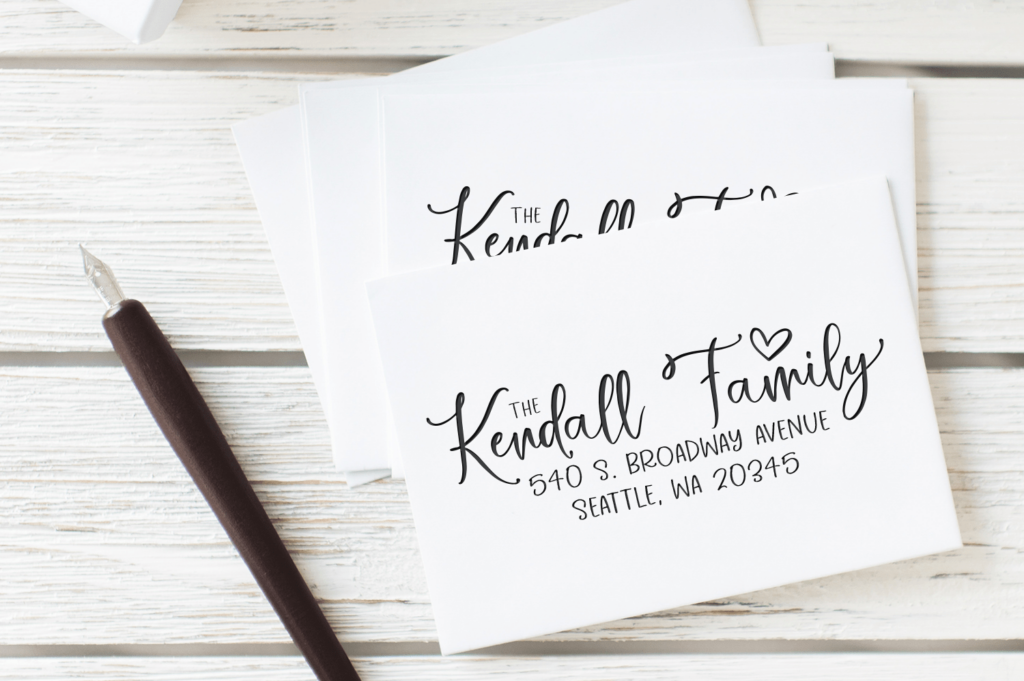 THE
Kendall
THE
Kendall Family
540 S. BROADWAY AVENUE
SEATTLE, WA 20345